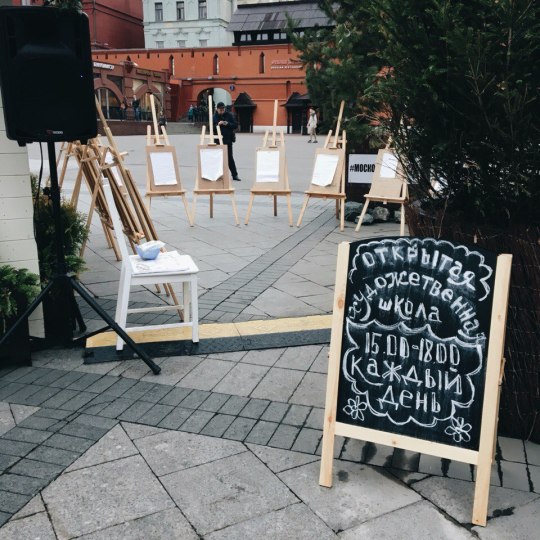 ОТКРЫТАЯ
художественная
школа
15.00-18.00
каждый
день
#МОСКО